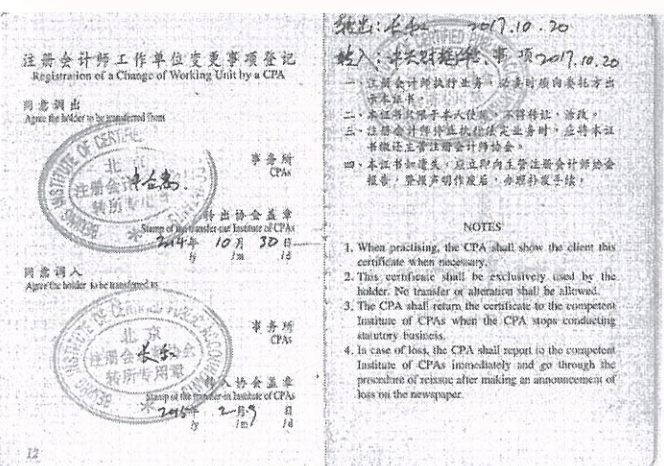 注册会计师工作单位变更事项登记
Registration of a Change of Working Unit by a CPA
同意调出
Agree the holder to be transferred from
事务所
CPAs
BEIJING INSTITUTE OF CERTIFIED
北京
注册会计师
转所专用章
转出协会盖章
Stamp of the transfer-out Institute of CPAs
2014年 10月 30日
/y /m /d
同意调入
Agree the holder to be transferred to
事务所
CPAs
BEIJING INSTITUTE OF CERTIFIED PUBLIC ACCOUNTANTS
北京
注册会计师协会
转所专用章
转入协会盖章
Stamp of the transfer-in Institute of CPAs
2015年 2月9日
/y /m /d
12
转出: 2017.10.20
转入: 2017.10.20
CERTIFIED
注意事项
一、注册会计师执行业务,必要时须向委托方出
示本证书。
二、本证书只限于本人使用,不得转让、涂改。
三、注册会计师停止执行法定业务时,应将本证
书缴还主管注册会计师协会。
四、本证书如遗失,应立即向主管注册会计师协会
报告,登报声明作废后,办理补发手续。
NOTES
1. When practising, the CPA shall show the client this
certificate when necessary.
2. This certificate shall be exclusively used by the
holder. No transfer or alteration shall be allowed.
3. The CPA shall return the certificate to the competent
Institute of CPAs when the CPA stops conducting
statutory business.
4. In case of loss, the CPA shall report to the competent
Institute of CPAs immediately and go through the
procedure of reissue after making an announcement of
loss on the newspaper.